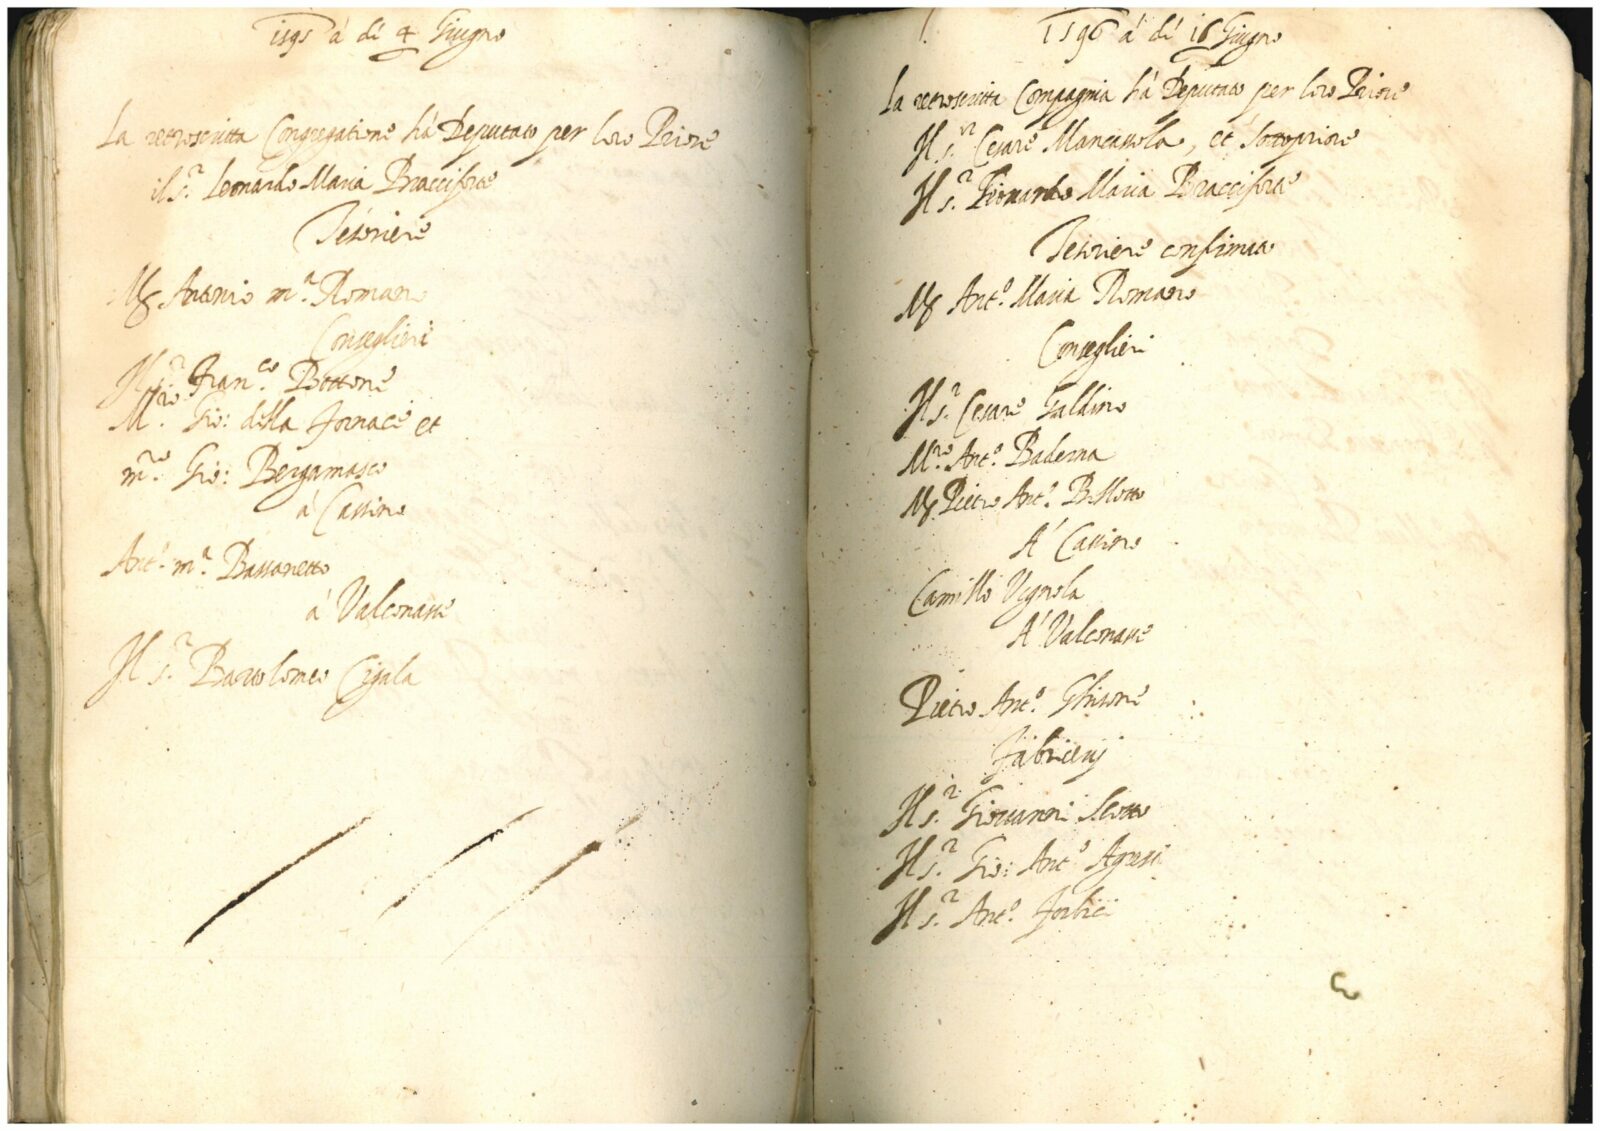 1595 á di 4 Giugno
La retroscritta Congregatione há Deputato per loro Priore
il s.r Leonardo Maria Bracciforte
Tesoriere
Ms Antonio m.a Romano
Conseglieri
Il s.r Fran.co Bottone
M.ro Gio: della fornace et
m.ro Gio: Bergamasco
á Cassino
Ant.o m.a Bassanetto
á Valconasse
Il s.r Bartolomeo Cigala
1596 á di 16 Giugno
La retroscritta Compagnia há Deputato per loro Priore
Il s.r Cesare Mancasola, et sottopriore
Il s.r Leonardo Maria Bracciforte
Tesoriere confirmato
Ms Ant.o Maria Romano
Conseglieri
Il s.r Cesare Galdino
M.ro Ant.o Baderna
Ms Pietro Ant.o Bellotto
A' Cassino
Camillo Vignola
A' Valconasse
Pietro Ant.o Ghisone
Fabricerij
Il s.r Giovanni Scotto
Il s.r Gio: Ant.o Agusi
Il s.r Ant.o forbici